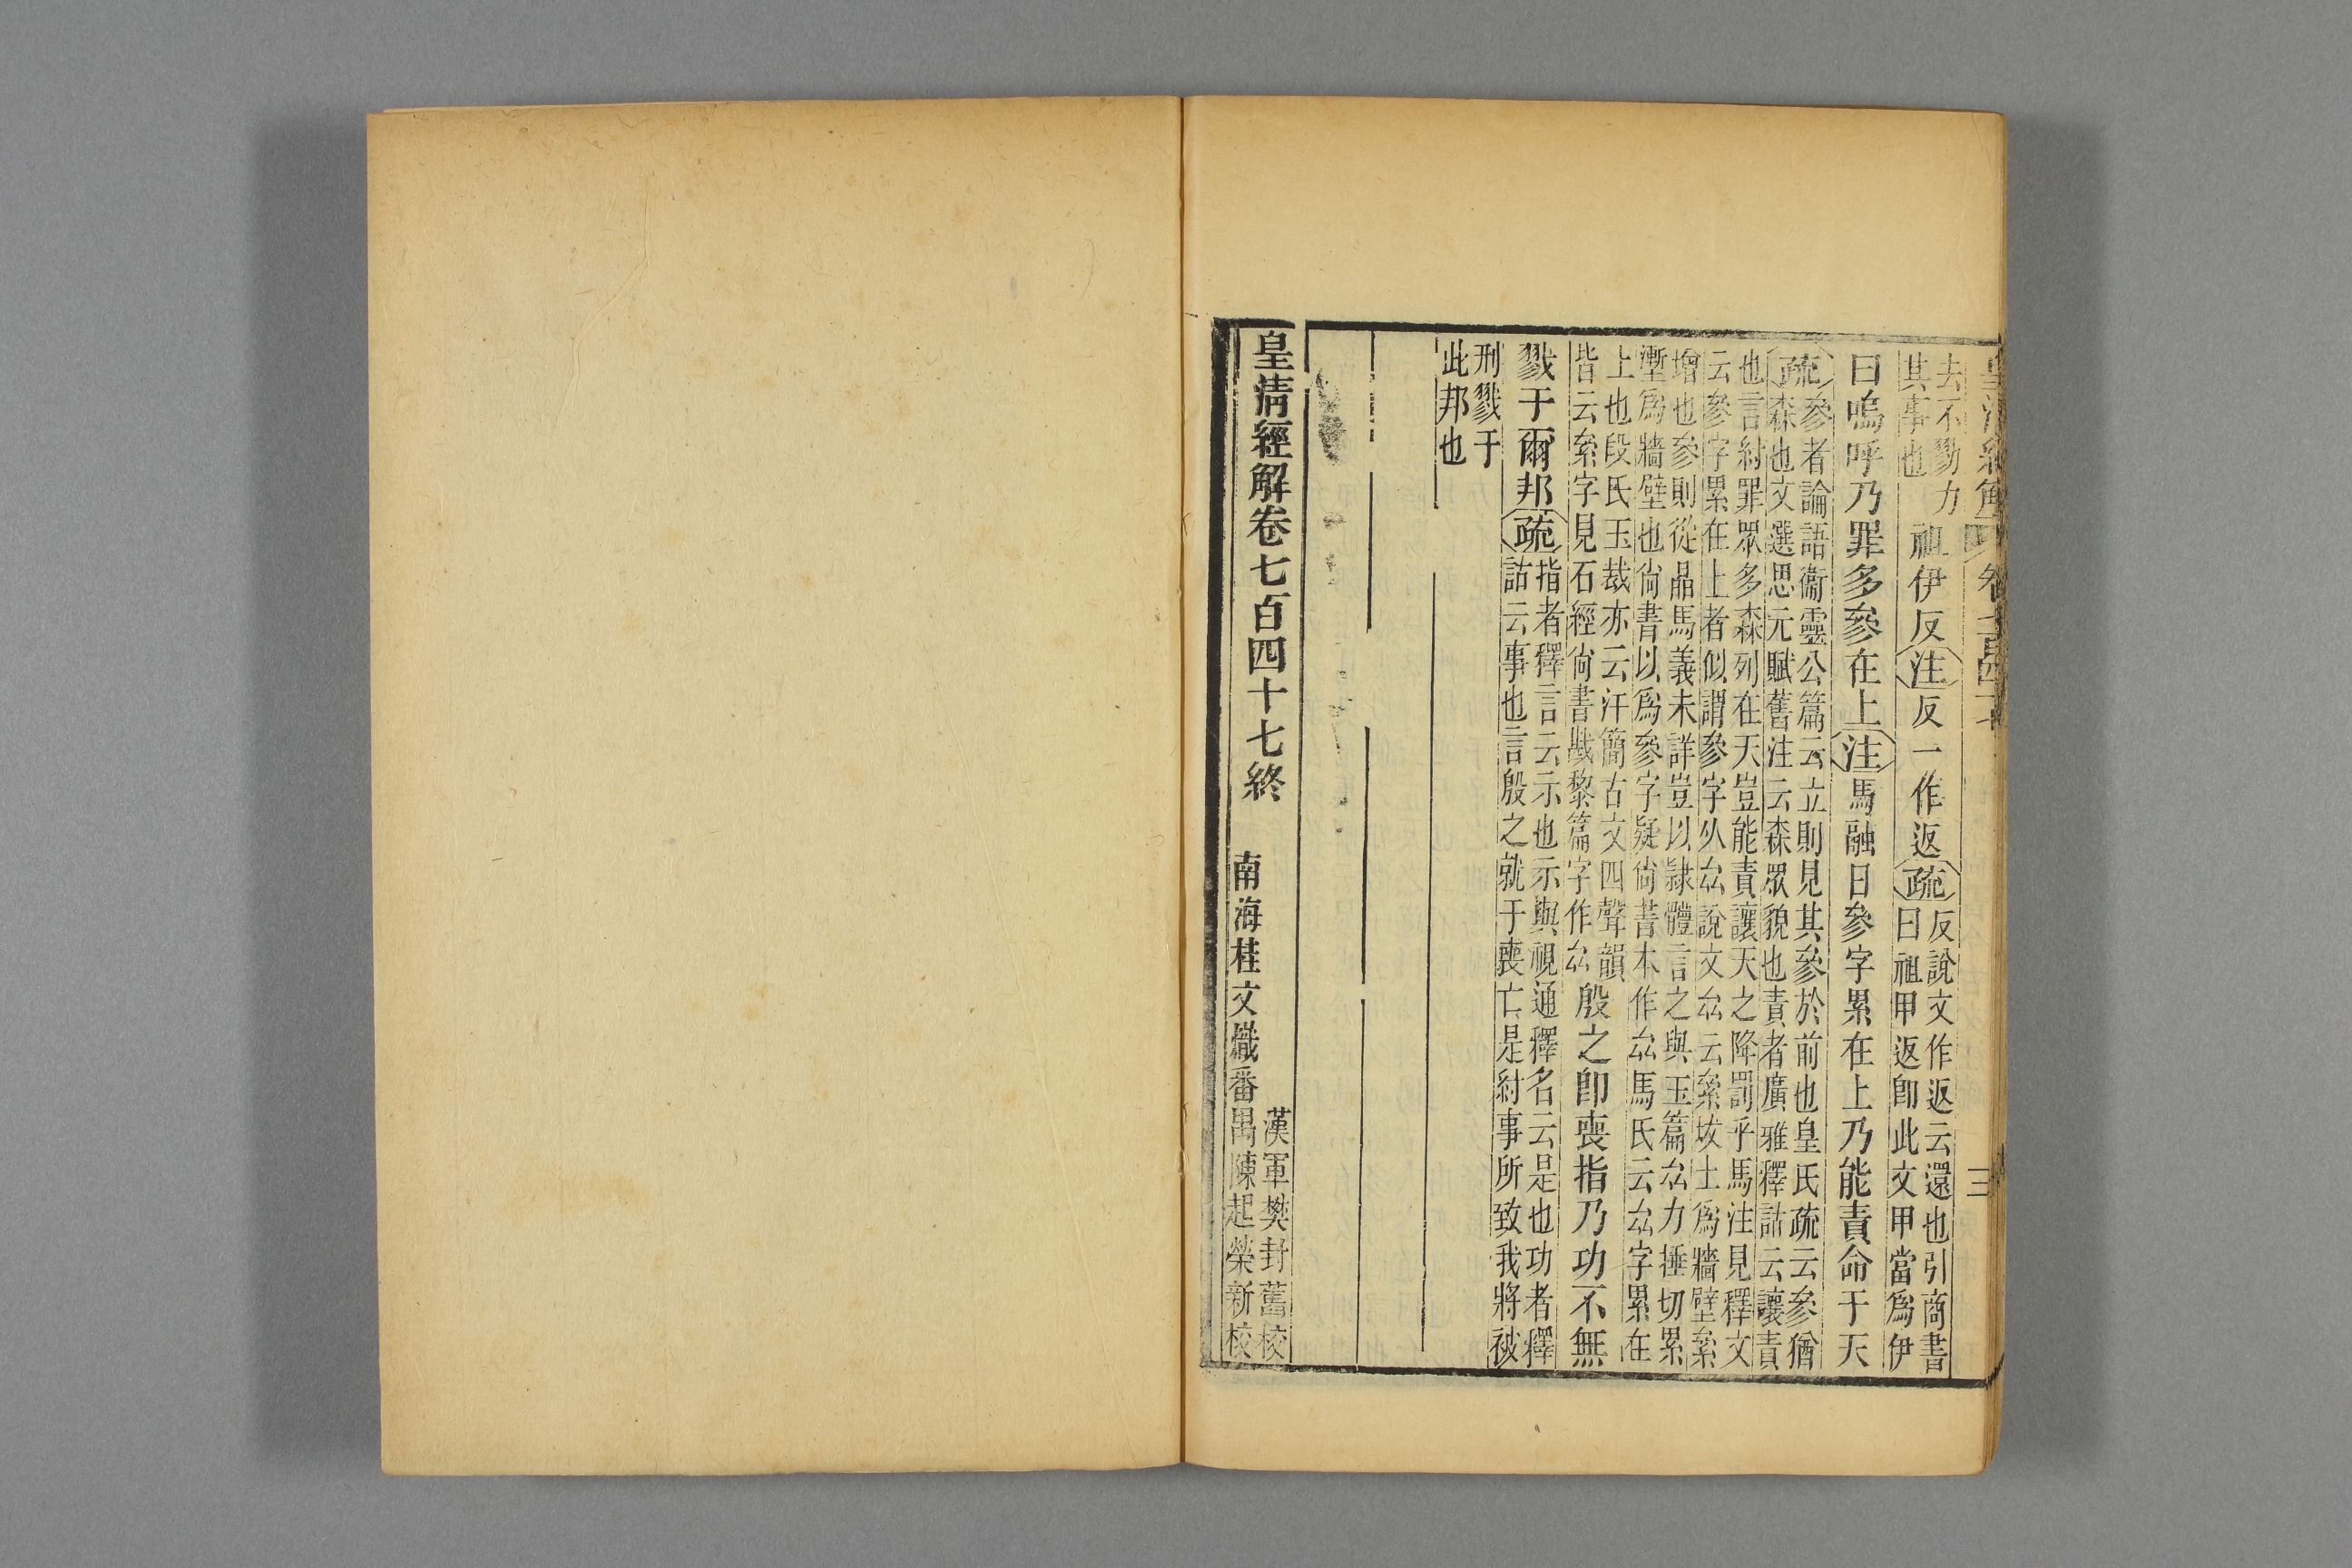 去不勠力
其事也
祖伊反注反一作返疏
反說文作返云還也引商書
曰祖甲返卽此文甲當爲伊
曰嗚呼乃罪多參在上注馬融曰參字累在上乃能責命于天
疏
參者論語衞靈公篇云立則見其參於前也皇氏疏云參猶
森也文選思元賦舊注云森眾貌也責者廣雅釋詁云讓責
也言紂罪眾多森列在天豈能責讓天之降罰乎馬注見釋文
云參字累在上者似謂參字从厽說文厽云絫坺土爲牆壁絫
增也參則從晶馬義未詳豈以隸體言之與玉篇厽力捶切累
塹爲牆壁也尙書以爲參字疑尙書本作厽馬氏云厽字累在
上也段氏玉裁亦云汗簡古文四聲韻
皆云絫字見石經尙書戡黎篇字作厽
殷之卽喪指乃功不無
戮于爾邦疏
指者釋言云示也示與視通釋名云是也功者釋
詁云事也言殷之就于喪亡是紂事所致我將被
刑戮于
此邦也
皇淸經解卷七百四十七終
漢軍樊封舊校
南海桂文熾番禺陳起榮新校
三